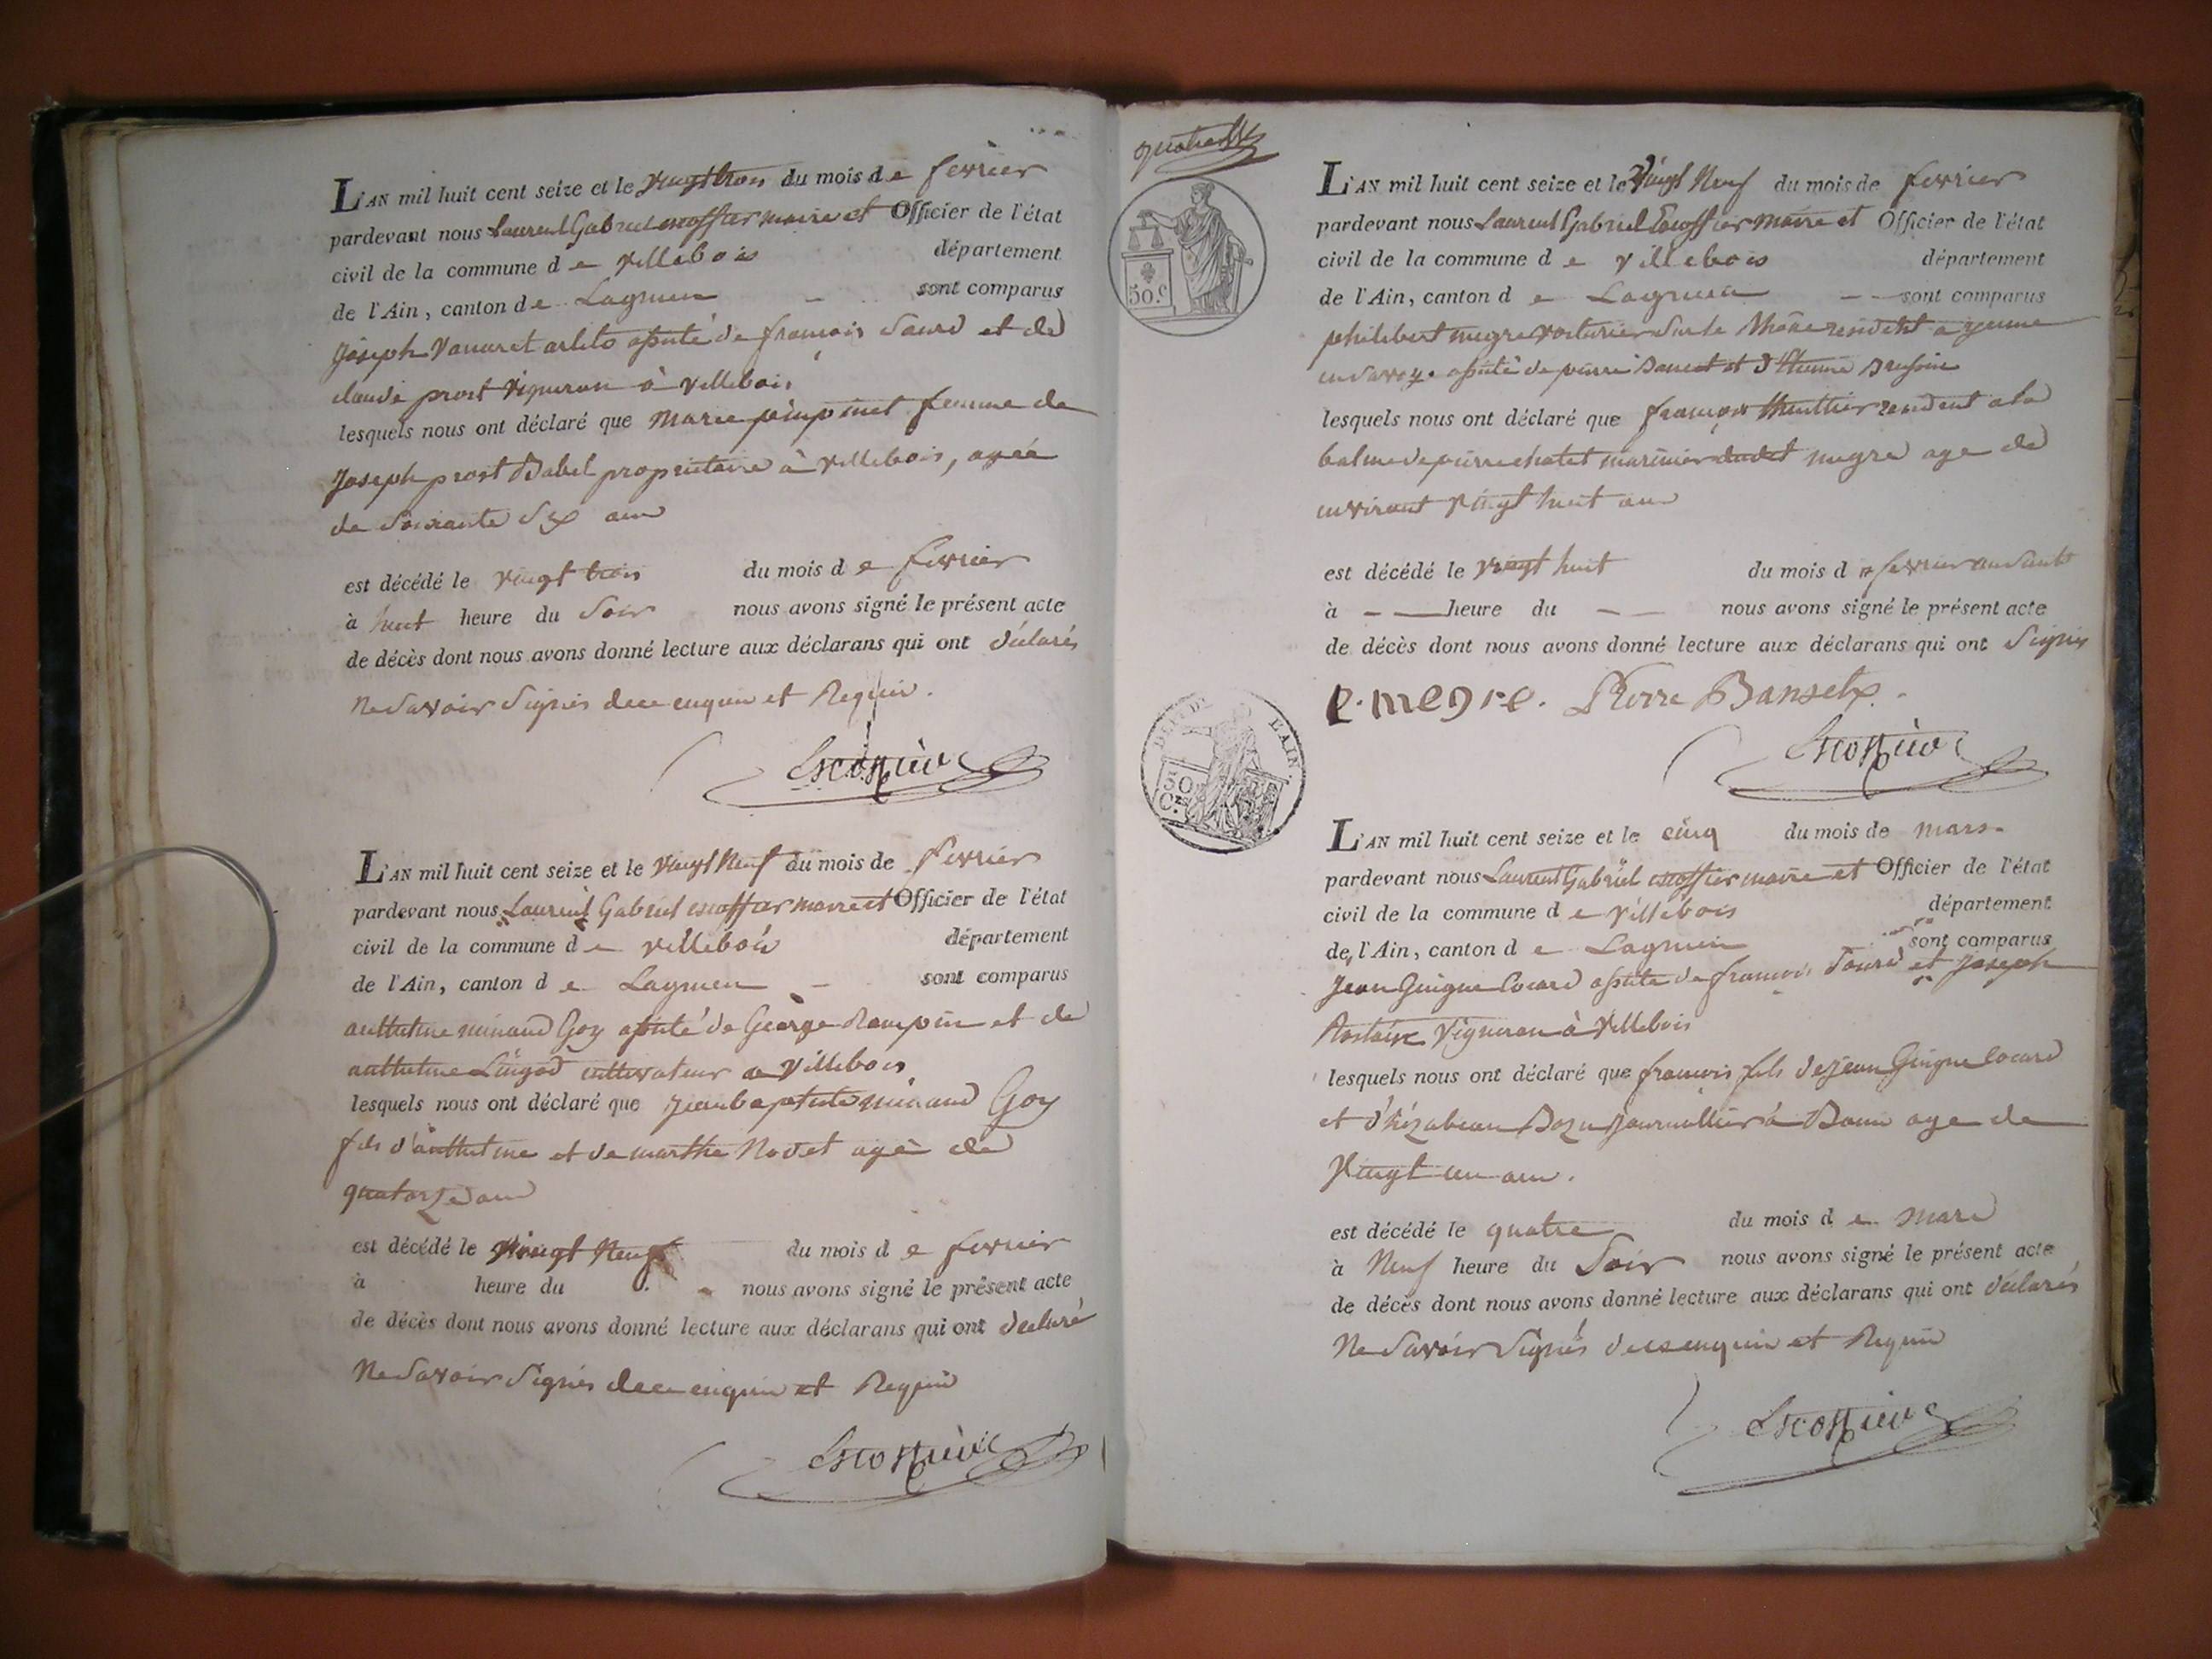 L'AN mil huit cent seize et le vingt trois du mois de fevrier
pardevant nous Laurent Gabriel escoffier maire et Officier de l'état
civil de la commune de villebois département
de l'Ain, canton de Lagnieu sont comparus
joseph vanaret assisté de francois Sourd et de
claude prost vigneron à villebois
lesquels nous ont déclaré que marie femme de
joseph prost Babel proprietaire à villebois, agée
de Soixante Six ans
est décédé le vingt trois du mois de fevrier
à huit heure du Soir nous avons signé le présent acte
de décès dont nous avons donné lecture aux déclarans qui ont déclarés
ne Savoir Signés de ce enquis et Requis.
Escoffier
L'AN mil huit cent seize et le vingt neuf du mois de fevrier
pardevant nous Laurent Gabriel escoffier maire et Officier de l'état
civil de la commune de villebois département
de l'Ain, canton de Lagnieu sont comparus
anthelme minand Goy assisté de George Rampin et de
anthelme Lingod cultivateur a villebois
lesquels nous ont déclaré que jean baptiste minand Goy
fils d'anthelme et de marthe Nodet agé de
quatorze ans
est décédé le vingt neuf du mois de fevrier
à heure du nous avons signé le présent acte
de décès dont nous avons donné lecture aux déclarans qui ont declaré
ne Savoir Signés de ce enquis et Requis
Escoffier
50 c.
L'AN mil huit cent seize et le vingt neuf du mois de fevrier
pardevant nous Laurent Gabriel Escoffier maire et Officier de l'état
civil de la commune de villebois département
de l'Ain, canton de Lagnieu sont comparus
philibert megre voiturier sur le Rhône residant a yenne
en Savoye assisté de pierre Bancet et d'Etienne
lesquels nous ont déclaré que françois residant a la
balme de pierre chatel marinier dudet megre age de
environt vingt huit ans
est décédé le vingt huit du mois de fevrier
à heure du nous avons signé le présent acte
de décès dont nous avons donné lecture aux déclarans qui ont Signés
P. megre. Pierre Banset
Escoffier
DÉP. DE L'AIN.
50 C.es
L'AN mil huit cent seize et le cinq du mois de mars
pardevant nous Laurent Gabriel escoffier maire et Officier de l'état
civil de la commune de villebois département
de l'Ain, canton de Lagnieu sont comparus
Jean Guigue Cocard assisté de francois Sourd et joseph
vigneron à villebois
lesquels nous ont déclaré que francois fils de jean Guigue Cocard
et d'hizabeau journallier à age de
vingt un ans.
est décédé le quatre du mois de mars
à Neuf heure du Soir nous avons signé le présent acte
de décès dont nous avons donné lecture aux déclarans qui ont déclarés
ne Savoir Signés de ce enquis et Requis
Escoffier